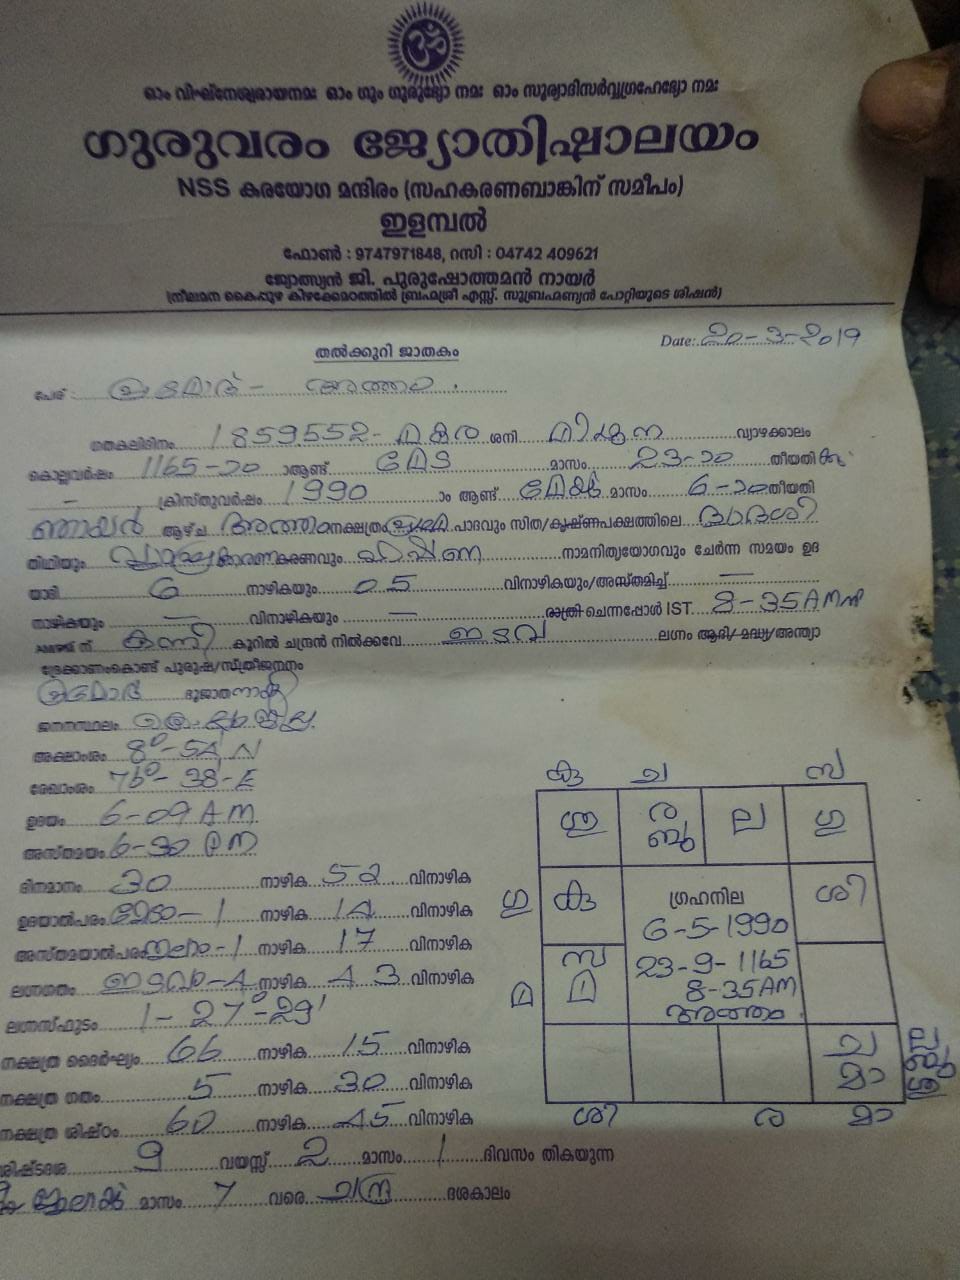 ഓം വിഘ്നേശ്വരായനമഃ ഓം ഗും ഗുരുഭ്യോ നമഃ ഓം സൂര്യാദിസർവ്വഗ്രഹേഭ്യോ നമഃ
ഗുരുവരം ജ്യോതിഷാലയം
NSS കരയോഗ മന്ദിരം (സഹകരണബാങ്കിന് സമീപം)
ഇളമ്പൽ
ഫോൺ : 9747971848, റസി : 04742 409621
ജ്യോത്സ്യൻ ജി. പുരുഷോത്തമൻ നായർ
(നീലമന കൈപ്പുഴ കിഴക്കേമഠത്തിൽ ബ്രഹ്മശ്രീ എസ്സ്. സുബ്രഹ്മണ്യൻ പോറ്റിയുടെ ശിഷൻ)
Date: 20-3-2019
തൽക്കുറി ജാതകം
പേര് : അത്തം
ഗതകലിദിനം 1859552- മകര ശനി മിഥുന വ്യാഴക്കാലം
കൊല്ലവർഷം 1165-ാം ാആണ്ട് മേട മാസം 23-ാം തീയതി
ക്രിസ്തുവർഷം 1990 ാം ആണ്ട് മേയ് മാസം 6-ാം തീയതി
ഞായർ ആഴ്ച അത്തം നക്ഷത്രം പാദവും സിത/കൃഷ്ണപക്ഷത്തിലെ ദ്വാദശി
തിഥിയും കരണവും ഹർഷണ നാമനിത്യയോഗവും ചേർന്ന സമയം ഉദ
യാദി 6 നാഴികയും 05 വിനാഴികയും/അസ്തമിച്ച് —
നാഴികയും — വിനാഴികയും — രാത്രി ചെന്നപ്പോൾ IST 8-35AM ന്
കന്നി കൂറിൽ ചന്ദ്രൻ നിൽക്കവേ ഇടവ ലഗ്നം ആദി/മദ്ധ്യ/അന്ത്യ
ദ്രേക്കാണംകൊണ്ട് പുരുഷ/സ്ത്രീജനനം
ഭൂജാതനായി
ജനനസ്ഥലം
അക്ഷാംശം 8°-54' N
രേഖാംശം 76°- 38'-E
ഉദയം 6-09 A.M.
അസ്തമയം 6-30 PM
ദിനമാനം 30 നാഴിക 52 വിനാഴിക
ഉദയാൽപരം മേടം- 1 നാഴിക 14 വിനാഴിക
അസ്തമയാൽപരം തുലാം-1 നാഴിക 17 വിനാഴിക
ലഗ്നഗതം ഇടവം-4 നാഴിക 43 വിനാഴിക
ലഗ്നസ്ഫുടം 1-27°-29'
നക്ഷത്ര ദൈർഘ്യം 66 നാഴിക 15 വിനാഴിക
നക്ഷത്ര ഗതം 5 നാഴിക 30 വിനാഴിക
നക്ഷത്ര ശിഷ്ഠം 60 നാഴിക 45 വിനാഴിക
ശിഷ്ടദശ 9 വയസ്സ് 2 മാസം 1 ദിവസം തികയുന്ന
ജൂലായ് മാസം 7 വരെ ചന്ദ്ര ദശകാലം
കു ച സ
ശു ര ബു ല ഗു
ഗു കു ശി
ഗ്രഹനില
6-5-1990
23-9-1165
8-35AM
അത്തം
മ സ മ
ച മാ
ല ബു ശു
ശി ര മാ